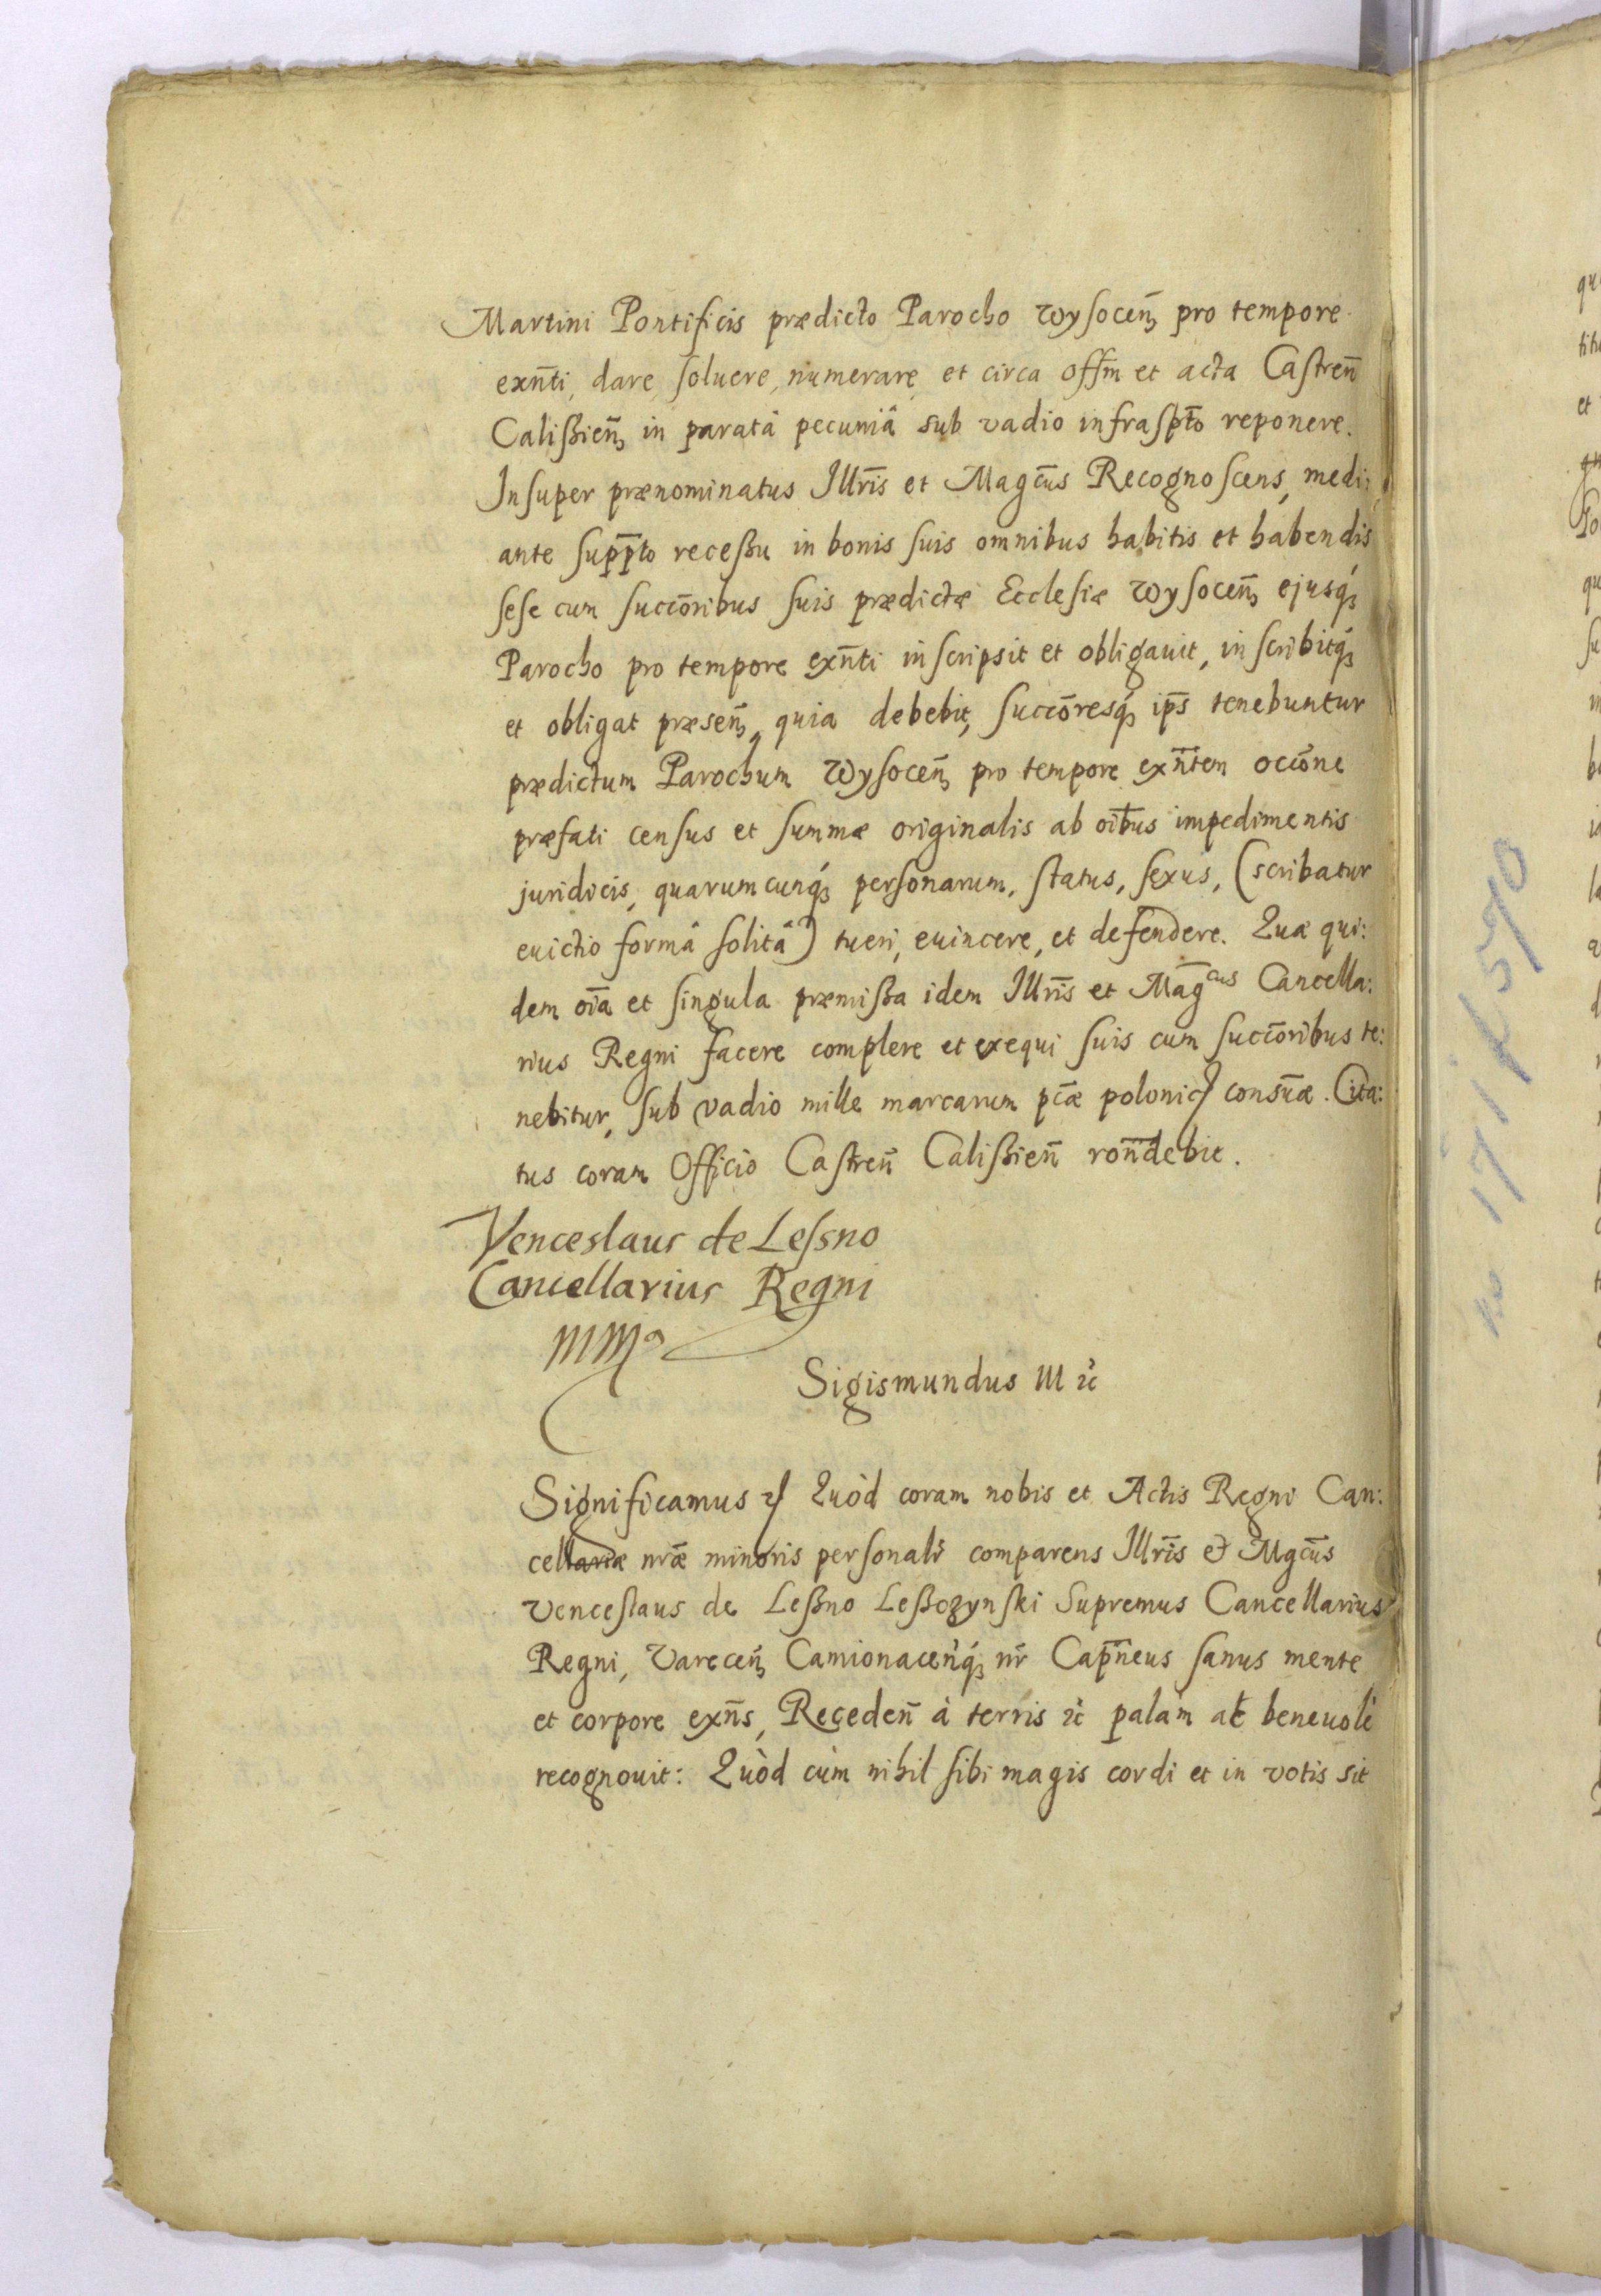 Martini Pontificis prædicto Parocho Wysoceñ pro tempore
exñti, dare, soluere, numerare et circa Offm̃ et acta Castreñ
Calißieñ in paratâ pecuniâ sub vadio infraspt̃o reponere.
Insuper prænominatus Illr̃is et Magc̃us Recognoscens, medi:
ante supp̃to receßu in bonis suis omnibus habitis et habendis
sese cum succõribus suis prædictæ Ecclesiæ Wysoceñ ejusq́;
Parocho pro tempore exñti inscripsit et obligauit, inscribitq́;
et obligat præseñ, quia debebit, succõresq́; ip̃s tenebuntur
prædictum Parochum Wysoceñ pro tempore exñtem occõne
præfati census et summæ originalis ab oĩbus impedimentis
juridicis, quarumcunq́; personarum, status, sexus, (scribatur
euictio formâ solitâ) tueri, euincere, et defendere. Quæ qui:
dem oĩa et singula præmißa idem Illr̃is et Mag̃cus Cancella:
rius Regni facere complere et exequi suis cum succõribus te:
nebitur, sub vadio mille marcarum pc̃æ polonic consũæ. Cita:
tus coram Officio Castreñ Calißieñ roñdebit.
Venceslaus de Lessno
Cancellarius Regni
mmp
Sigismundus III ꝛc̃
Significamus ꝛc Quòd coram nobis et Actis Regni Can:
cellariæ nr̃æ minoris personalr̃ comparens Illr̃is & Mgc̃us
Venceslaus de Leßno Leßczynski Supremus Cancellarius
Regni, Vareceñ Camionaceñq́; nr̃ Cap̃neus sanus mente
et corpore exñs, Recedeñ à terris ꝛc̃ palam ac benevolè
recognouit: Quòd cùm nihil sibi magis cordi et in votis sit